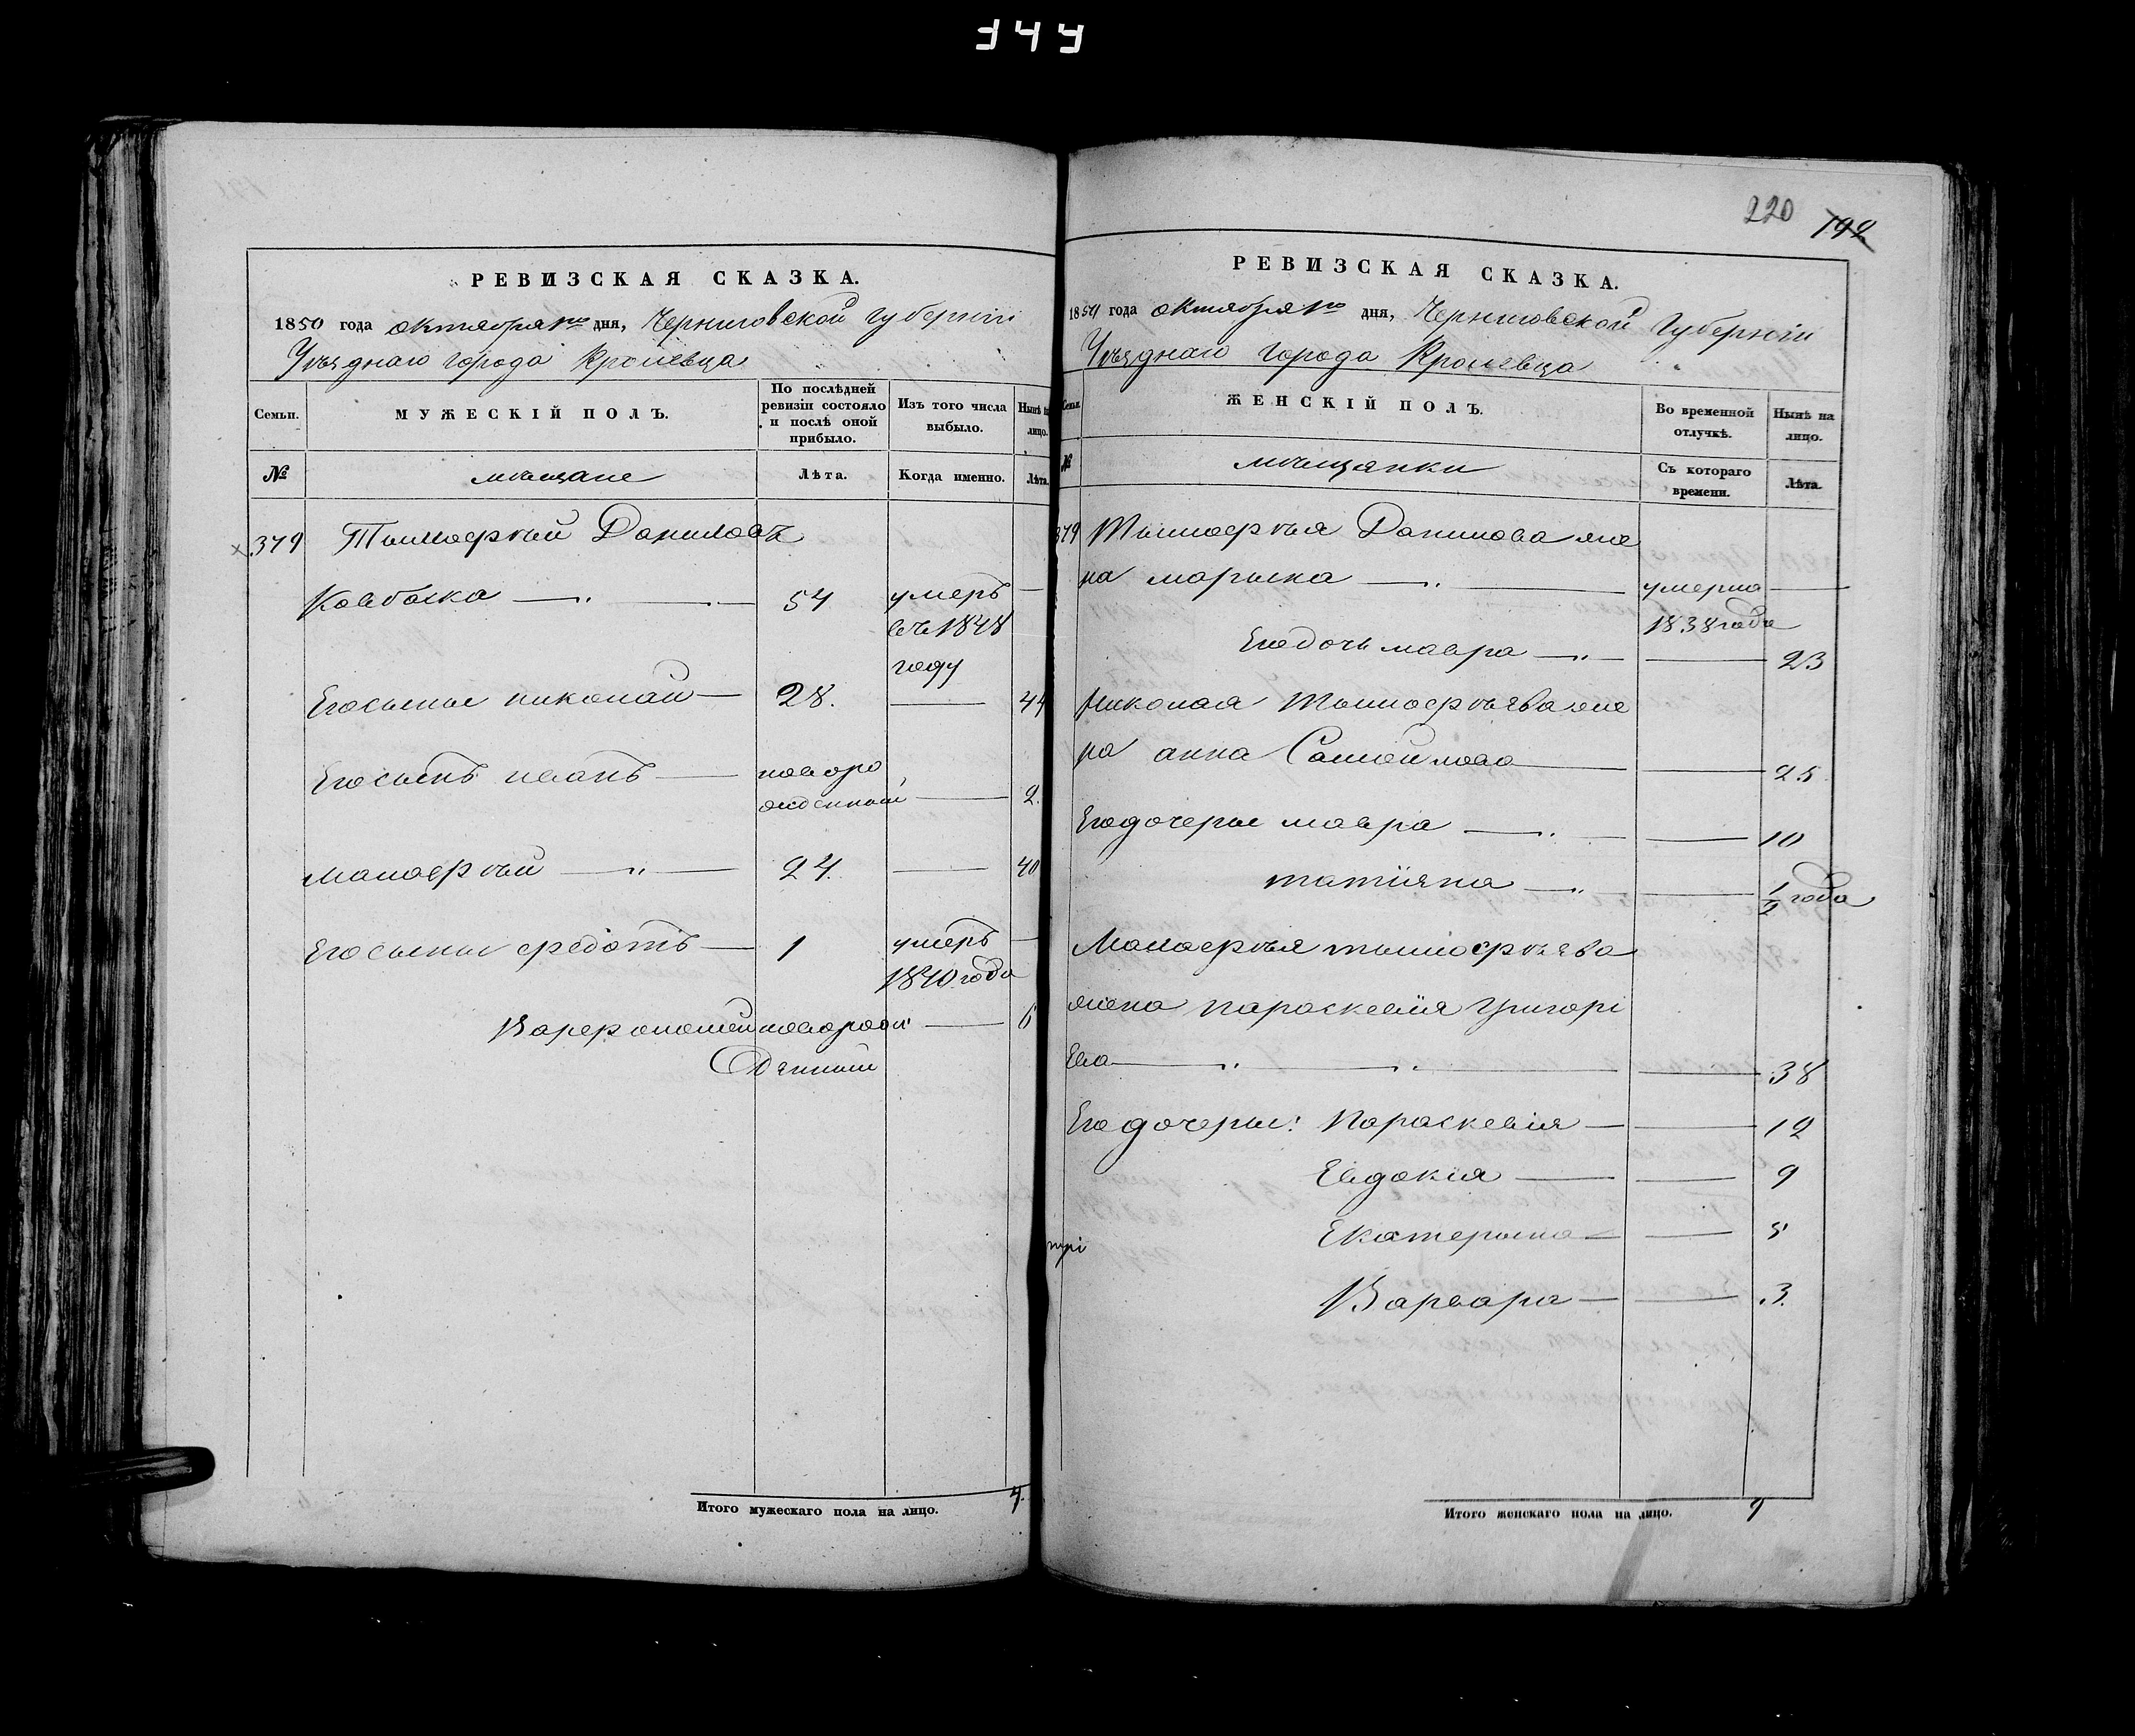 220 192
РЕВИЗСКАЯ СКАЗКА.
1850 года октября дня, Черниговской губернiи
Уѣзднаго города Кролевца
Семьи.
МУЖЕСКІЙ ПОЛЪ.
По послѣдней ревизіи состояло и послѣ оной прибыло.
Изъ того числа выбыло.
Нынѣ на лицо.
№
мѣщане
Лѣта.
Когда именно.
Лѣта.
379 Тимофѣй Даниловъ
54 умеръ
въ 1848
году
Егосыны николай 28. 44
Егосынъ иванъ новоро
жденный 2.
24. 40
Егосыны федотъ 1 умеръ
1840 года
новорож 6
денный
Итого мужескаго пола на лицо. 4.
РЕВИЗСКАЯ СКАЗКА.
года октября дня, Черниговской Губернiи
Уѣзднаго города Кролевца
Семьи.
ЖЕНСКІЙ ПОЛЪ.
Во временной отлучкѣ.
Нынѣ на лицо.
№
мѣщанки
Съ котораго времени.
Лѣта.
379 Тимофѣя Данилова же
на марына умерла
1838 года
Егодочь мавра 23
Николая Тимофѣева же
на анна Самойлова 25
Егодочеры мавра 10
татiяна 1/2 года
тимофѣева
жена параскевiя григорi
Ева 38
Его дочеры: Параскевiя 12
Евдокiя 9
Екатерына 5
Варвара 3.
Итого женскаго пола на лицо. 9